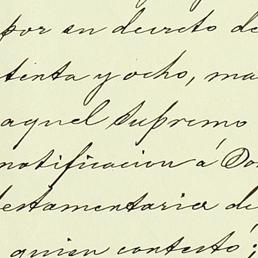 por su decreto de
tenta y ocho, ma
aquel Supremo
notificacion á Do
estamentaria de
quien contestó;